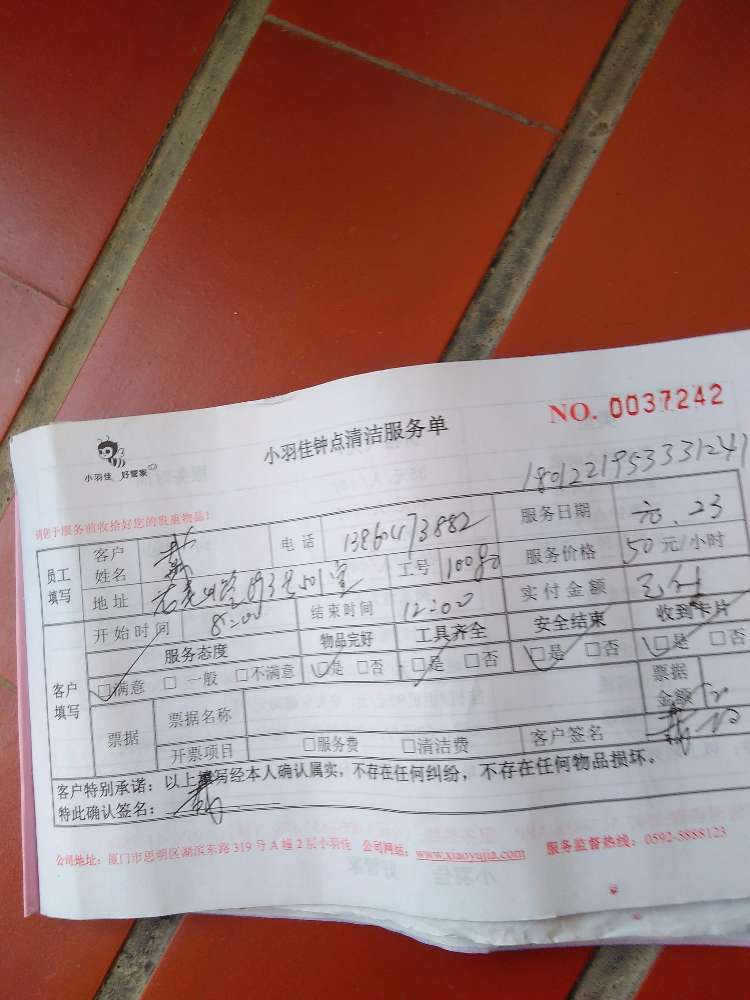 小羽佳 好管家
小羽佳钟点清洁服务单
NO. 0037242
1801221953331241
请您于服务前收给好您的贵重物品!
员工填写
客户姓名
电话 13860473882
服务日期 元.23
地址
工号 10080
服务价格 50元/小时
开始时间 8:00
结束时间 12:00
实付金额 已付
客户填写
服务态度 物品完好 工具齐全 安全结束 收到卡片
□满意 □一般 □不满意 □是 □否 □是 □否 □是 □否 □是 □否
票据 票据名称 票据金额
开票项目 □服务费 □清洁费 客户签名
客户特别承诺：以上填写经本人确认属实，不存在任何纠纷，不存在任何物品损坏。
特此确认签名：
公司地址：厦门市思明区湖滨东路319号A幢2层小羽佳 公司网站：www.xiaoyujia.com 服务监督热线：0592-5888123